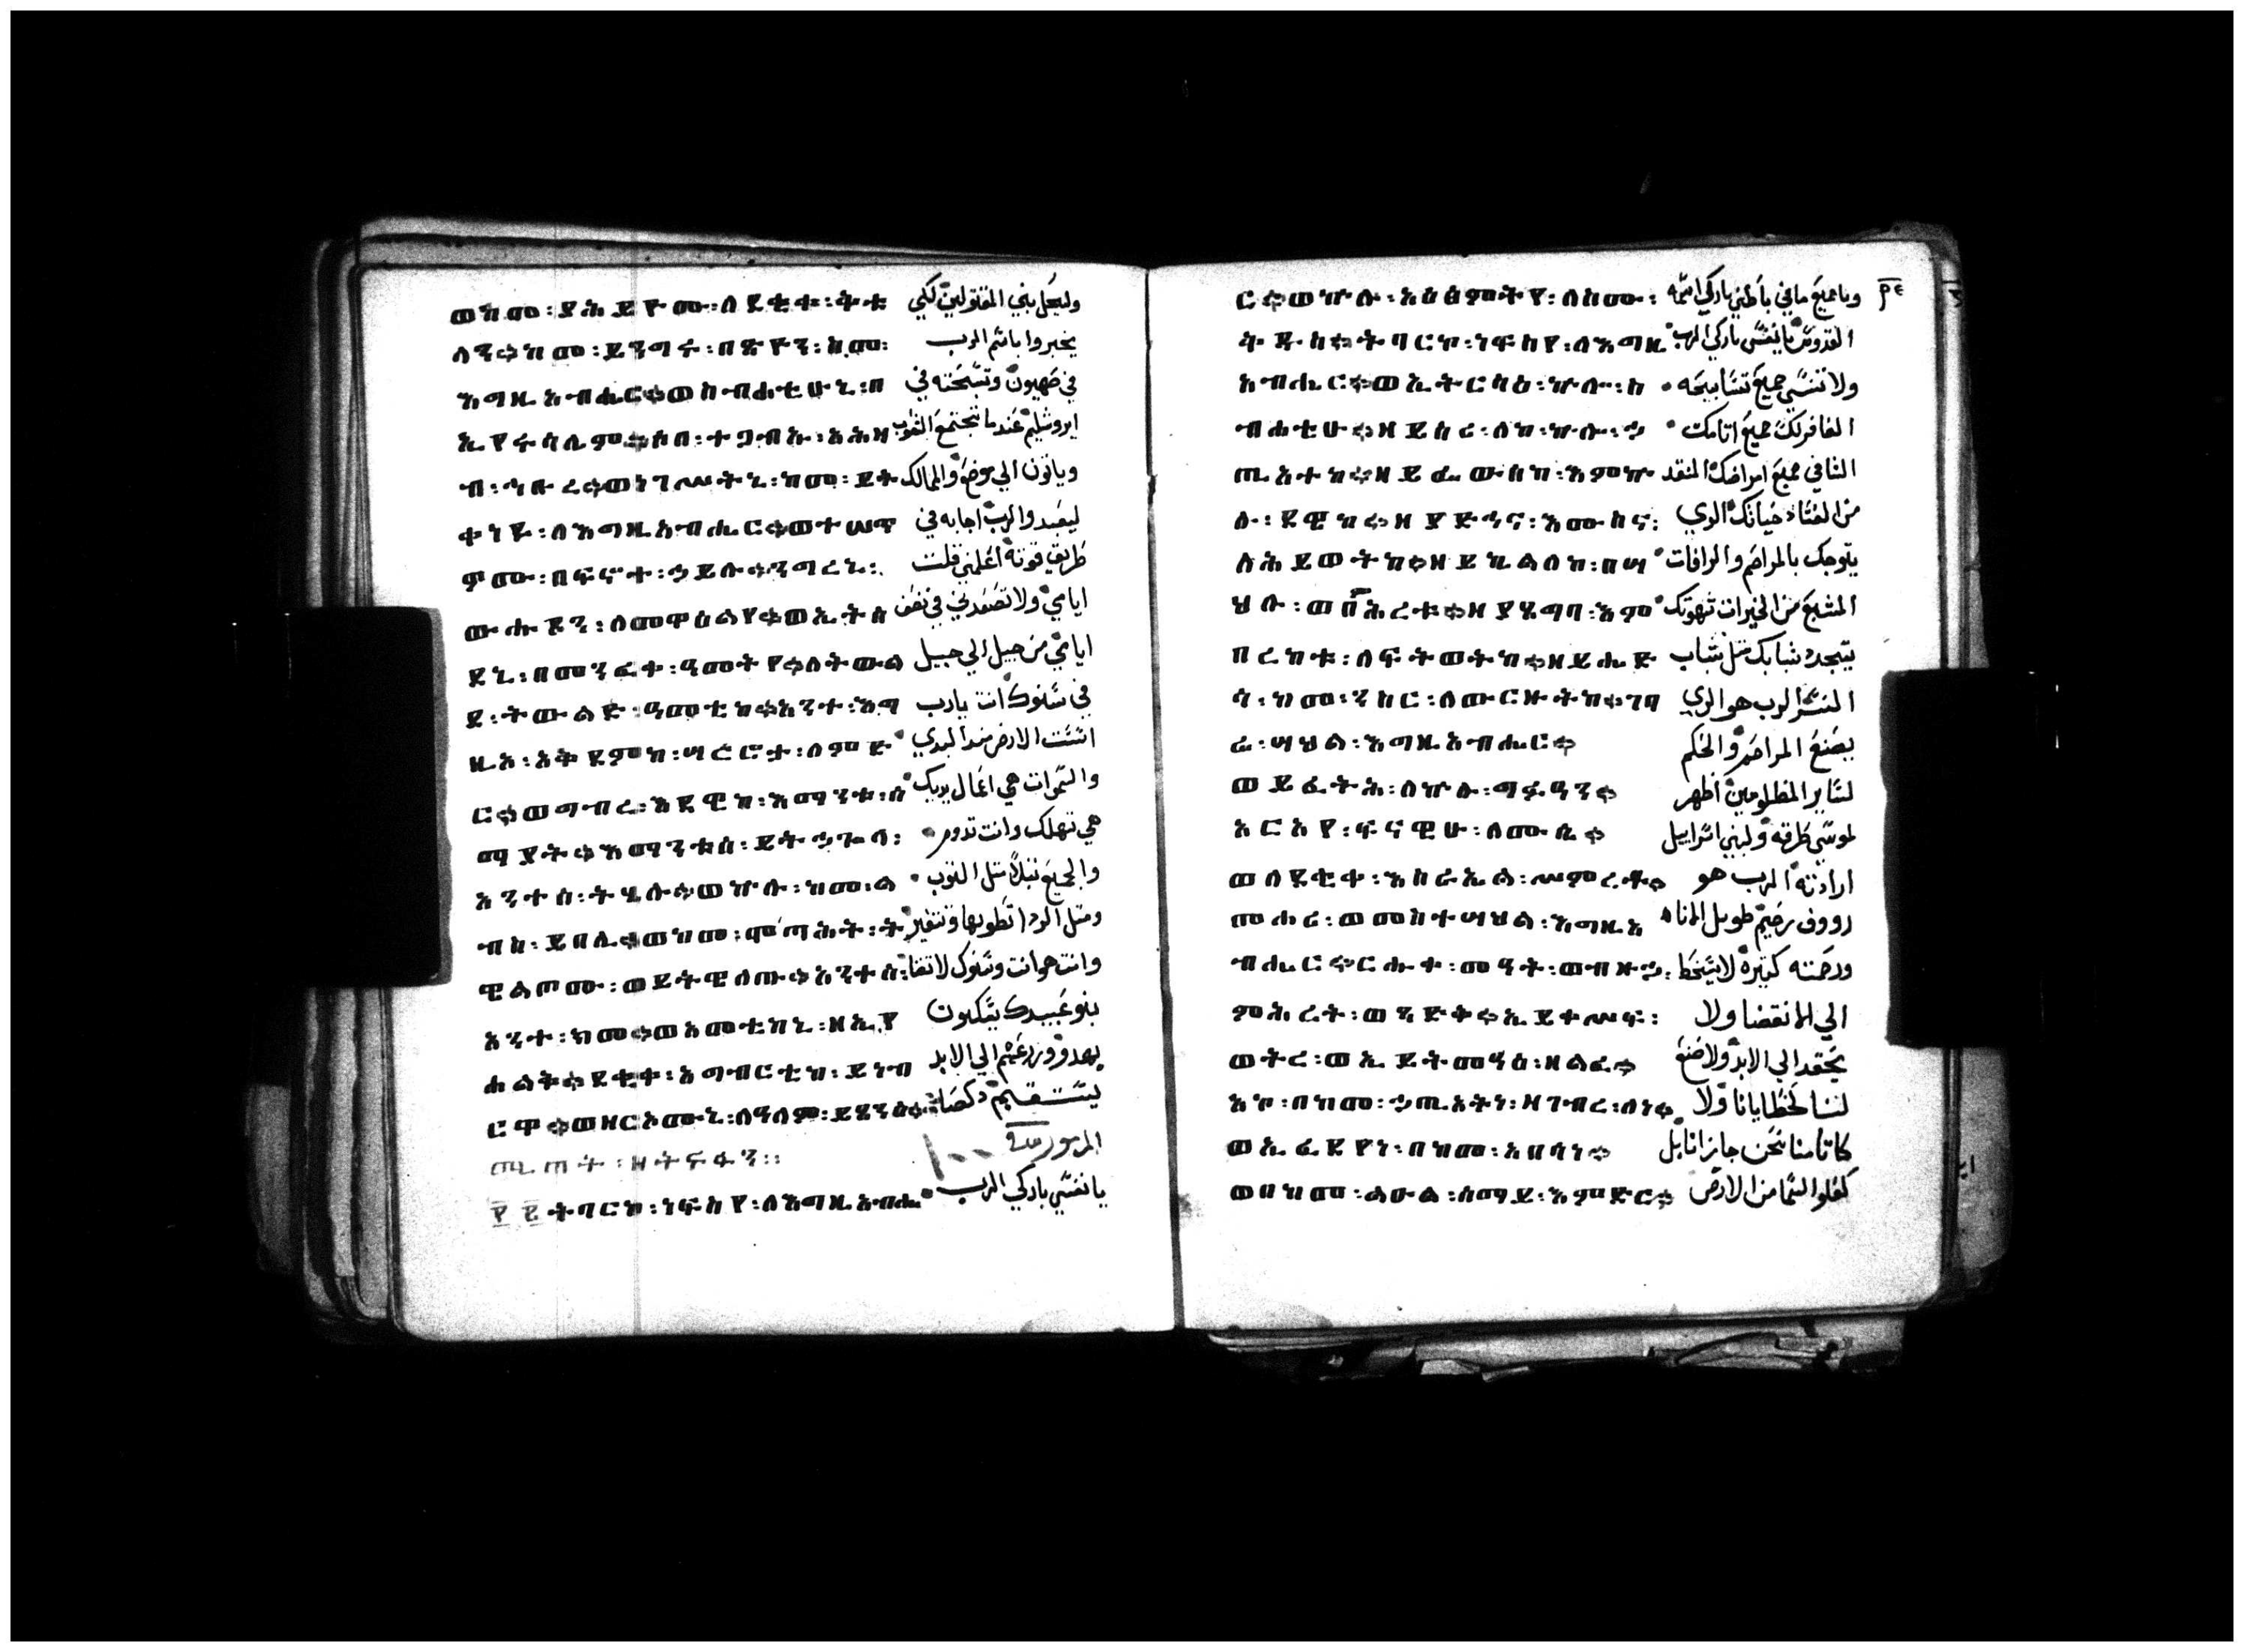 ወከመ፡ ያሕይዮሙ፡ ለደቂቀ፡ ቅቱ ولیحل بني المقتولین لكي
ለን። ከመ፡ ይንግሩ፡ በጽዮን፡ ስመ፡ یخبروا باسم الرب
እግዚአብሔር። ወስብሐቲሁኒ፡ በ في صهیون وتسبحته في
ኢየሩሳሌም። ሶበ፡ ተጋብኡ፡ አሕዛ ایروشلیم عند ما تجتمع الشعوب
ብ፡ ኅቡረ። ወነገሥትኒ፡ ከመ፡ ይት ویاتون الي موضع والممالك
ቀነዩ፡ ለእግዚአብሔር። ወተሠጥ لیعبدوا الرب اجابه في
ዎሙ፡ በፍኖተ፡ ኀይሉ። ንግረኒ፡ طریق قوته اعلمني قلت
ውሑዳን፡ ለመዋዕልየ። ወኢትስ ایامي ولا تصعدني في نصف
ደኒ፡ በመንፈቀ፡ ዓመትየ። ለትውል ایامي من جیل الي جیل
ደ፡ ትውልድ፡ ዓመቲከ። አንተ፡ እግ في سنوك انت یارب
ዚአ፡ አቅደምከ፡ ሣረርታ፡ ለምድ اسست الارض منذ البدي
ር። ወግብረ፡ እደዊከ፡ እማንቱ፡ ሰ والسموات هي اعمال یدیك
ማያት። እማንቱሰ፡ ይትኀጐላ፡ هي تهلك وانت تدوم
አንተሰ፡ ትሄሉ። ወኵሉ፡ ከመ፡ ል والجمیع تبلا مثل الثوب
ብስ፡ ይበሊ። ወከመ፡ ሞጣሕት፡ ት ومثل الردا تطویها فتتغیر
ዌልጦሙ፡ ወይትዌለጡ። አንተሰ፡ وانت هو انت وسنوك لا تفنا
አንተ፡ ክመ። ወአመቲከኒ፡ ዘኢየ بنو عبیدك یسكنون
ሐልቅ። ደቂቀ፡ አግብርቲከ፡ ይነብ وزرعهم الي الابد
ርዋ። ወዘርኦሙኒ፡ ለዓለም፡ ይጸንዕ። یستقیم
المزمور ١٠٠
፻፪ ትባርኮ፡ ነፍስየ፡ ለእግዚአብሔ یا نفسي باركي الرب
ር። ወኵሉ፡ አዕፅምትየ፡ ለስሙ፡ ویا جمیع ما في باطني باركي اسمه
ቅዱስ። ትባርኮ፡ ነፍስየ፡ ለእግዚ القدوس یا نفسي باركي الرب
አብሔር። ወኢትርስዕ፡ ኵሎ፡ ስ ولا تنسي جمیع تسابیحه
ብሐቲሁ። ዘይሰሪ፡ ለከ፡ ኵሎ፡ ኀ الغافر لك جمیع اثامك
ጢአተከ። ዘይፌውሰከ፡ እምኵ الشافي جمیع امراضك المنقد
ሉ፡ ደዌከ። ዘያድኅና፡ እሙስና፡ من الفساد حیاتك الدي
ለሕይወትከ። ዘይኬልለከ፡ በሣ یتوجك بالمراحم والرافات
ህሉ፡ ወበሕረቱ። ዘያጸግባ፡ እም المشبع من الخیرات شهوتك
በረከቱ፡ ለፍትወትከ። ዘይሔድ یتجدد شبابك مثل شباب
ሳ፡ ከመ፡ ንስር፡ ለውርዙትከ። ገባ النسر الرب هو الدي
ሬ፡ ሣህል፡ እግዚአብሔር። یصنع المراحم والحكم
ወይፈትሕ፡ ለኵሉ፡ ግፉዓን። لسایر المظلومین اظهر
አርአየ፡ ፍናዊሁ፡ ለሙሴ። لموسي طرقه ولبني اسراییل
ወለደቂቀ፡ እስራኤል፡ ሥምረቶ። ارادته الرب هو
መሐሪ፡ ወመስተሣህል፡ እግዚአ رووف رحیم طویل الاناه
ብሔር። ርሑቀ፡ መዓት፡ ወብዙኀ፡ ورحمته كثیرة لا یسخط
ምሕረት፡ ወጻድቅ። ኢይቀሥፍ፡ الي الانقضا ولا
ወትረ፡ ወኢይትመዓዕ፡ ዘልፈ። یحقد الي الابد ولا صنع
አኮ፡ በከመ፡ ኀጢአትነ፡ ዘገብረ፡ ለነ። لنا كخطایانا ولا
ወኢፈደየነ፡ በከመ፡ አበሳነ። كاثامنا نحن جازانا بل
ወበከመ፡ ልዑል፡ ሰማይ፡ እምድር። كعلو السما من الارض